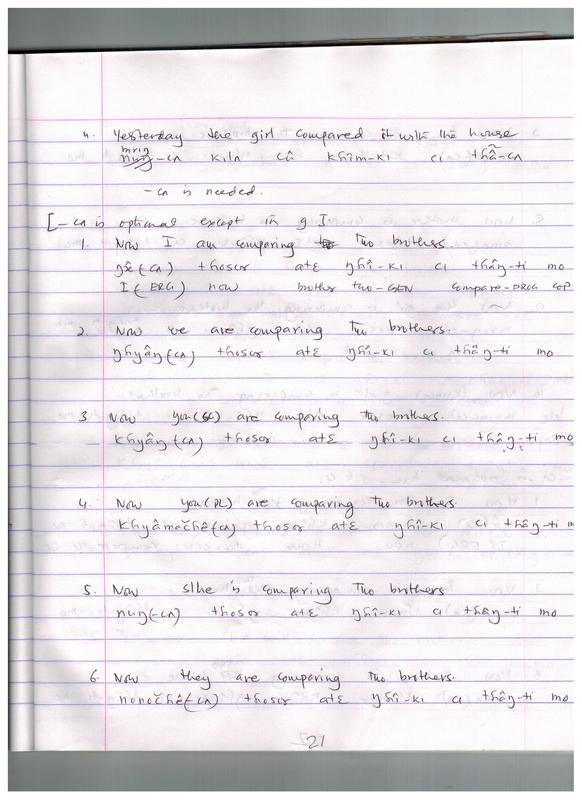 4. Yesterday the girl compared it with the house
mrig
nuŋ-cʌ kʌlʌ câ khim-kı cı thẫ-cʌ
-cʌ is needed.
[-cʌ is optional except in g I
1. Now I am comparing two brothers.
ŋê(cʌ) thosor atɛ ŋhî-kı cı thâŋ-ti mo
I(ERG) now brother two-GEN compare-PROG COP
2. Now we are comparing two brothers.
ŋhyâŋ(cʌ) thosor atɛ ŋhî-kı cı thâŋ-ti mo
3 Now you(SG) are comparing two brothers.
khyâŋ(cʌ) thosor atɛ ŋhî-kı cı thâŋ-ti mo
4. Now you(PL) are comparing two brothers.
khyâmačhê(cʌ) thosor atɛ ŋhî-kı cı thâŋ-ti m
5. Now s/he is comparing two brothers
nuŋ(-cʌ) thosor atɛ ŋhî-kı cı thâŋ-ti mo
6. Now they are comparing two brothers.
nonočhê(-cʌ) thosor atɛ ŋhî-kı cı thâŋ-ti mo
21